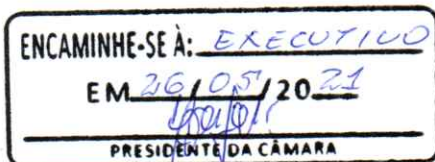 ENCAMINHE-SE À: EXECUTIVO
EM 26/05/2021
PRESIDENTE DA CÂMARA